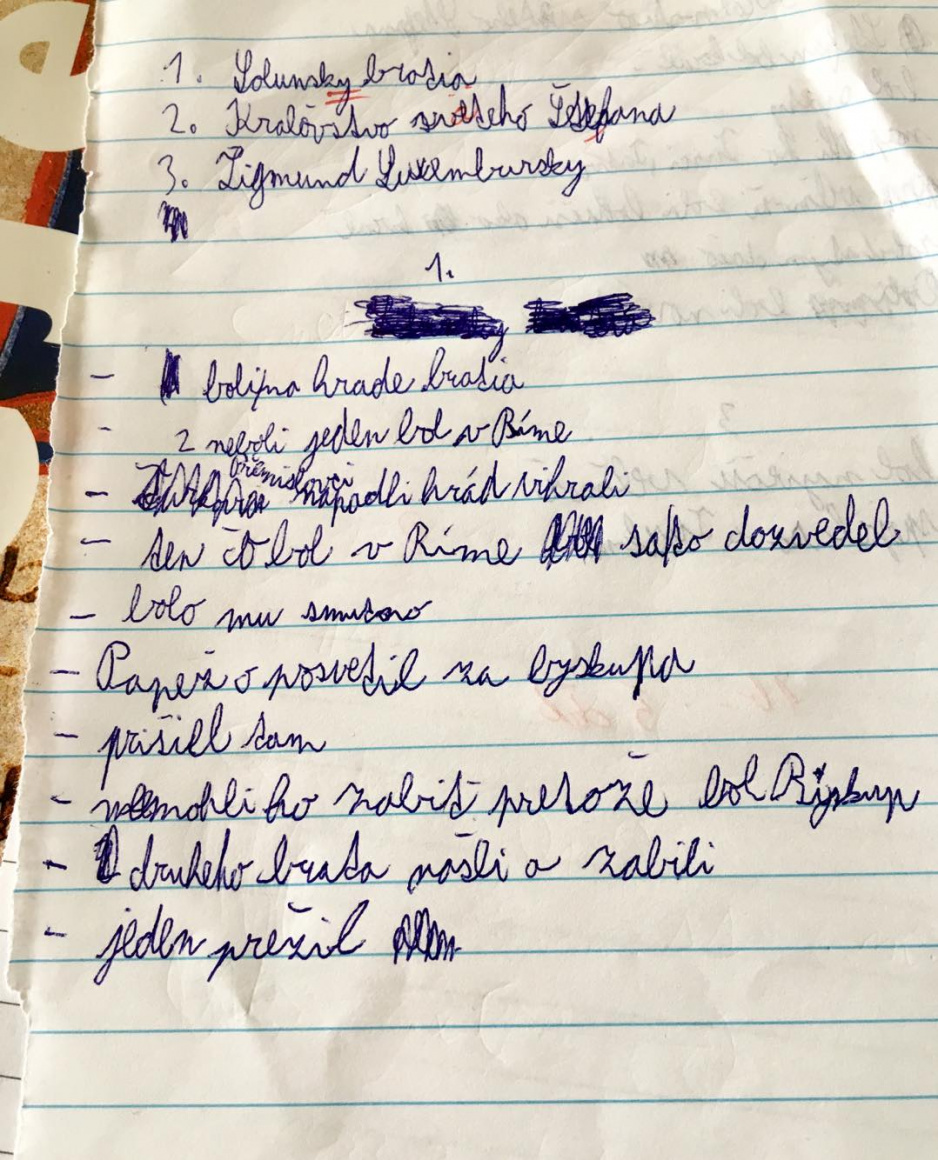 1. Solunsky bratia
2. Kralovstvo svätého Štefana
3. Žigmund Luxembursky
1.
- boli na hrade bratia
- 2 neboli jeden bol v Ríme
- Přemislovci napadli hrád vihrali
- ten čo bol v Ríme sa to dozvedel
- bolo mu smutno
- Papež o posvetil za byskupa
- prišiel tam
- nemohli ho zabiť pretože bol Biskup
- druheho brata našli a zabili
- jeden prežil